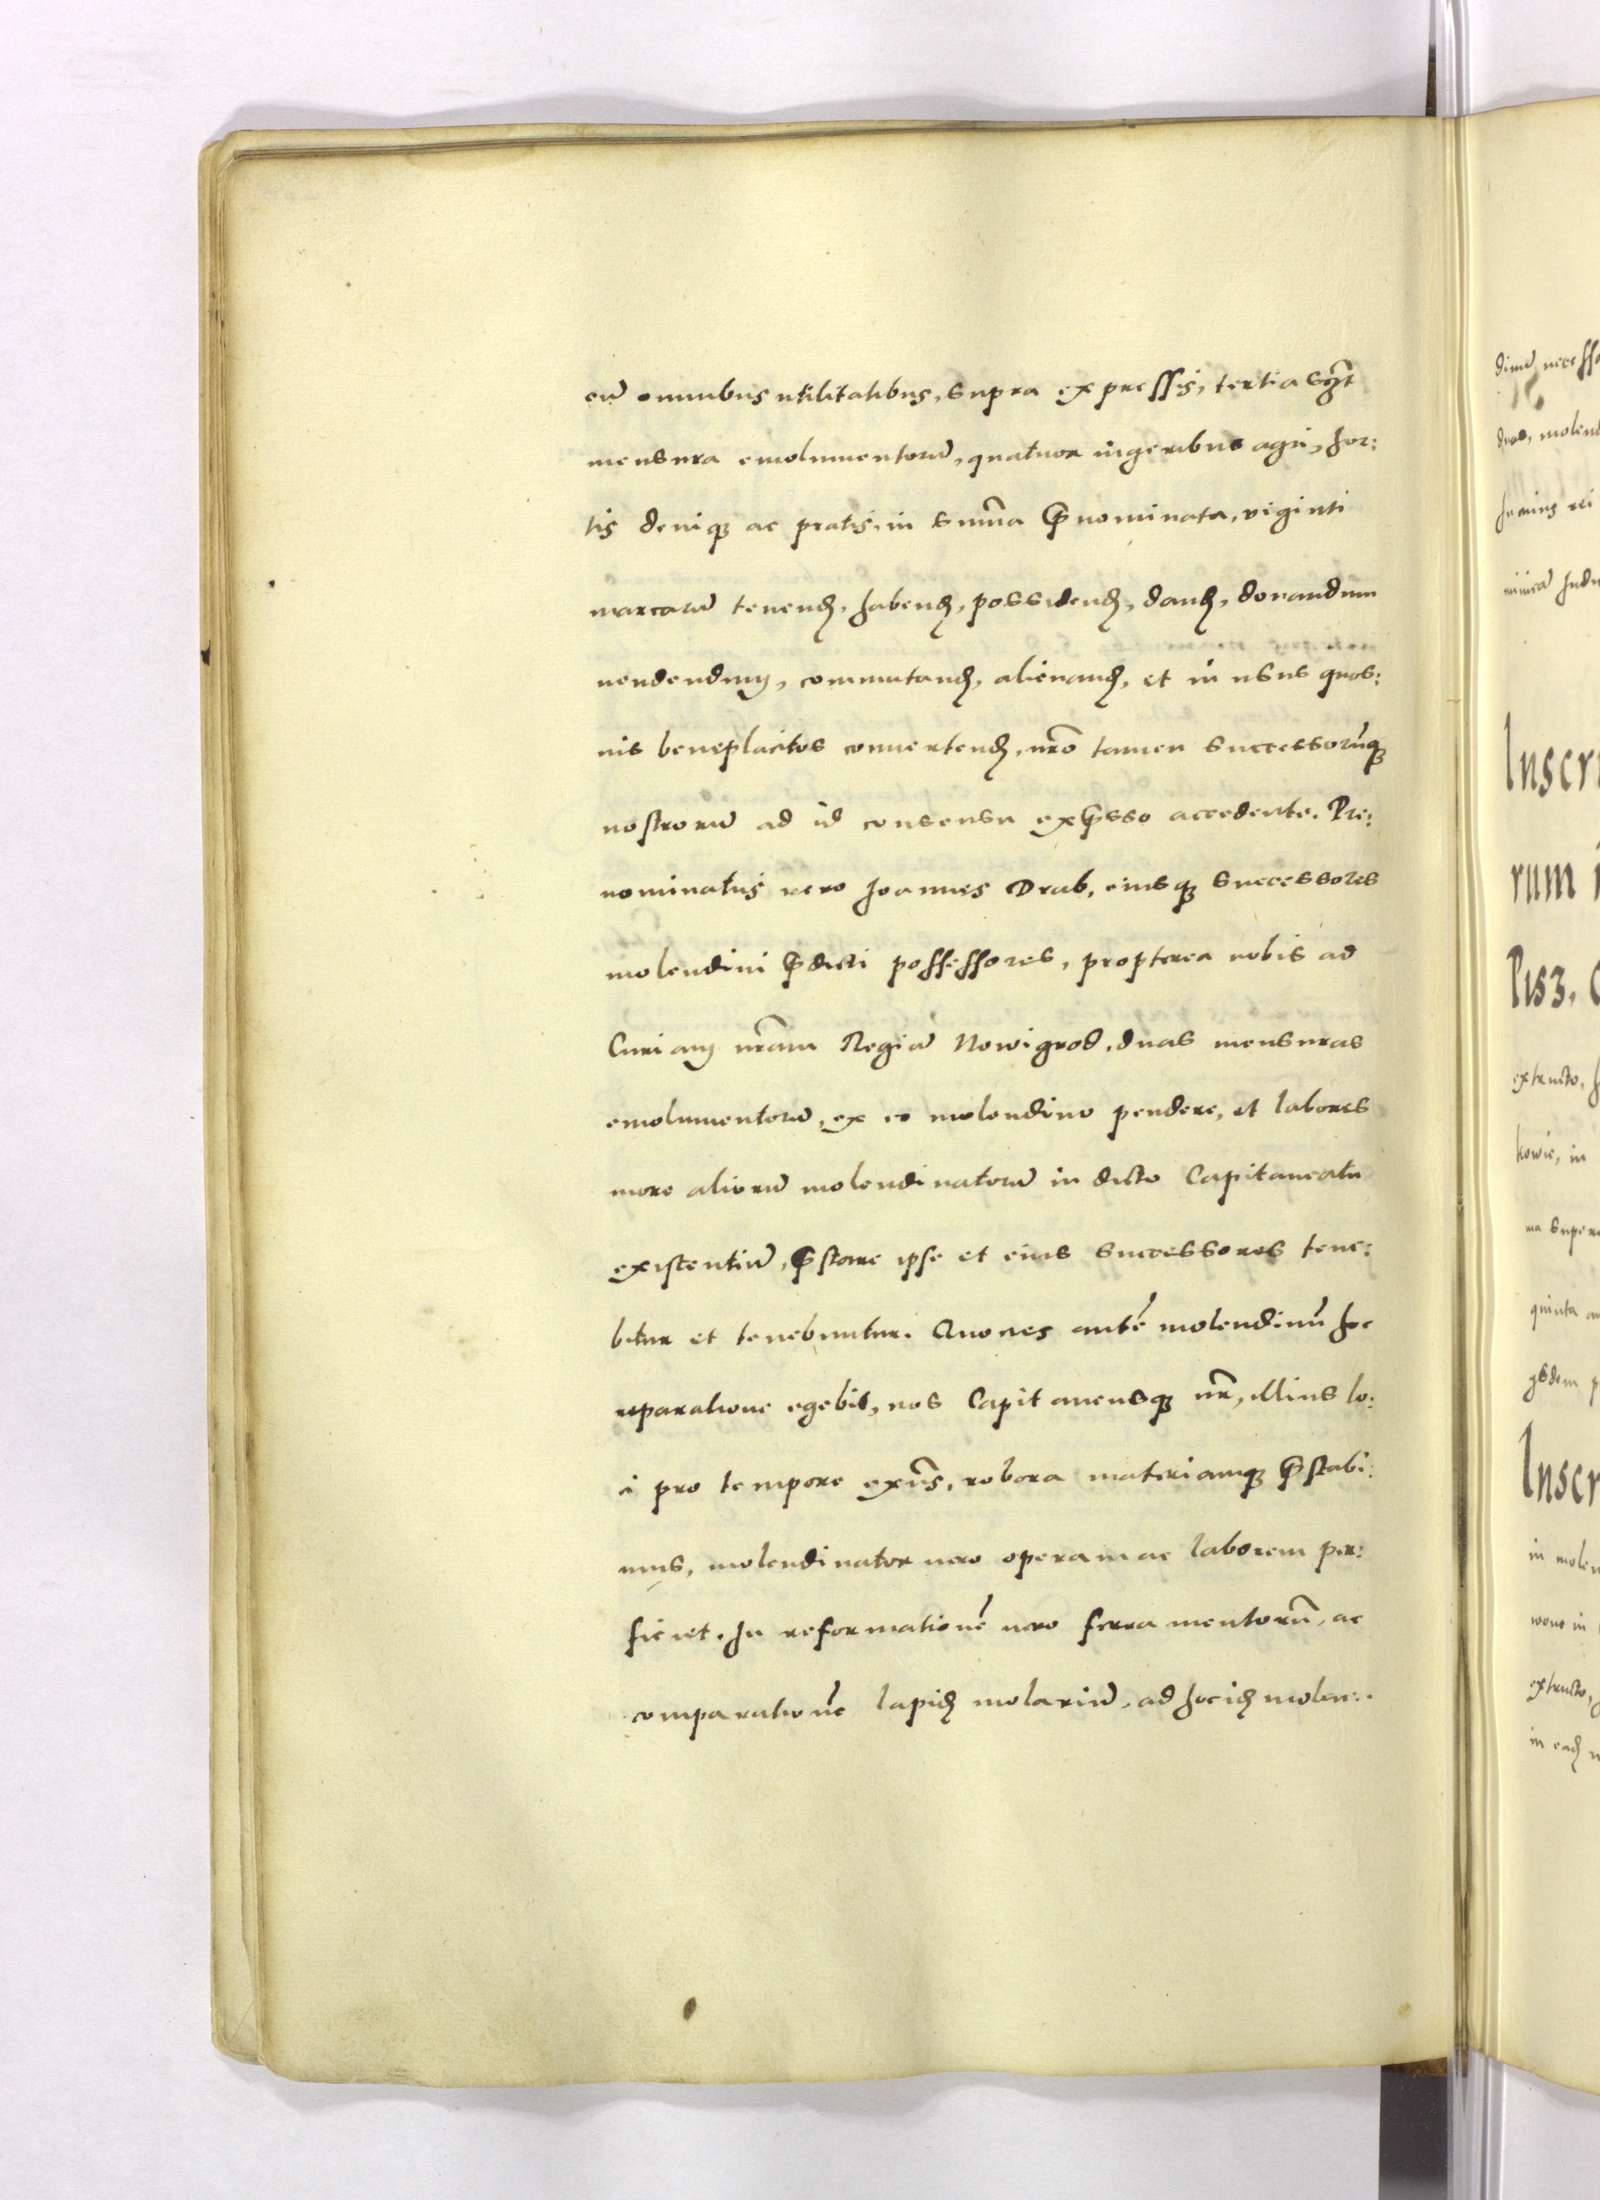 cū omnibus utilitatibus, supra expressis, tertia
mensura emolumentorū, quatuor iugeribus agri, hor:
tis deniqꝫ ac pratis, in sum̄a p̄nominata, viginti
marcarū tenenꝺ, habenꝺ, possidenꝺ, danꝺ, donandum
uendendum, commutanꝺ, alienanꝺ, et in usus quos:
uis beneplacitos conuertenꝺ, nr̄o tamen successorūqꝫ
nostrorū ad id consensu exp̄sso accedente. Pre:
nominatus uero Joannes Drab, eiusqꝫ successores
molendini p̄dicti possessores, propterea nobis ad
Curiam nr̄am Regiā Nowigrod, duas mensuras
emolumentorū, ex eo molendino pendere, et labores
more aliorū molendinatorū in dicto Capitaneatu
existentiū, p̄stare ipse et eius successores tene:
bitur et tenebuntur. Quoties autē molendinū hoc
reparatione egebit, nos Capitaneusqꝫ nr̄, illius lo:
ci pro tempore exn̄s, robora materiamqꝫ p̄stabi:
mus, molendinator uero operam ac laborem per:
ficiet. In reformationē uero ferramentorū, ac
comparationē lapiꝺ molariū, ad hociꝺ molen:
dinū necess
duas, molend
huius rei
Inscri
rum i
Pisz.
extructo,
kowie, in
ma super
quinta
in molen
wone in
extructo,
in eaꝺ